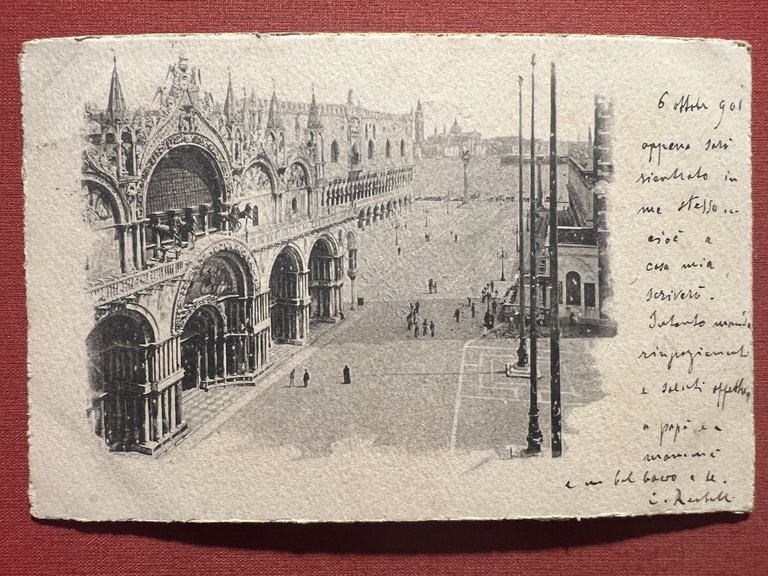 6 ottobr 901
appena sarò
rientrato in
me stesso...
cioè a
casa mia,
scriverò.
Intanto manda
ringraziamenti
e saluti affettuosi
a papà e a
mammà
e un bel bacio a te.